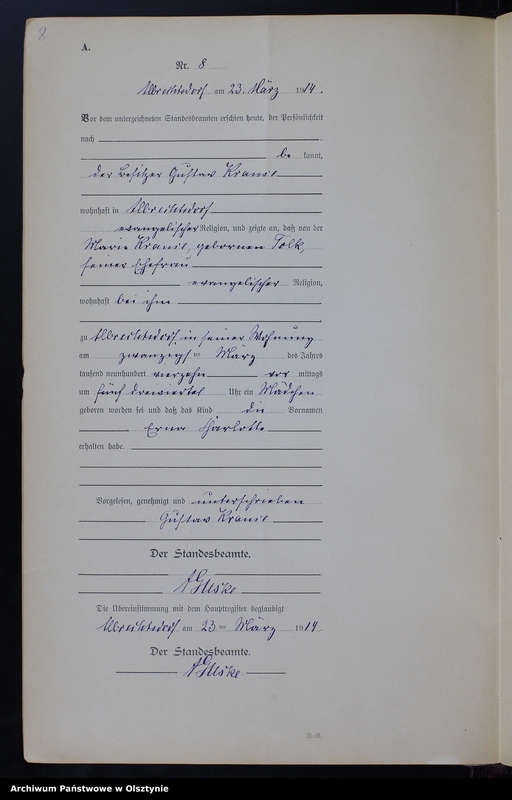 8
A.
Nr. 8
Albrechtsdorf am 23. März 1914.
Vor dem unterzeichneten Standesbeamten erschien heute, der Persönlichkeit
nach
be kannt,
der Besitzer Gustav
wohnhaft in Albrechtsdorf
evangelischer Religion, und zeigte an, daß von der
Marie geborenen Tolk,
seiner Ehefrau
evangelischer Religion,
wohnhaft bei ihm
zu Albrechtsdorf, in seiner Wohnung
am zwanzigsten März des Jahres
tausend neunhundert vierzehn vor mittags
um fünf dreiviertel Uhr ein Mädchen
geboren worden sei und daß das Kind die Vornamen
Erna Charlotte
erhalten habe.
Vorgelesen, genehmigt und unterschrieben
Gustav
Der Standesbeamte.
Die Übereinstimmung mit dem Hauptregister beglaubigt
Albrechtsdorf am 23 ten März 1914
Der Standesbeamte.
Archiwum Państwowe w Olsztynie